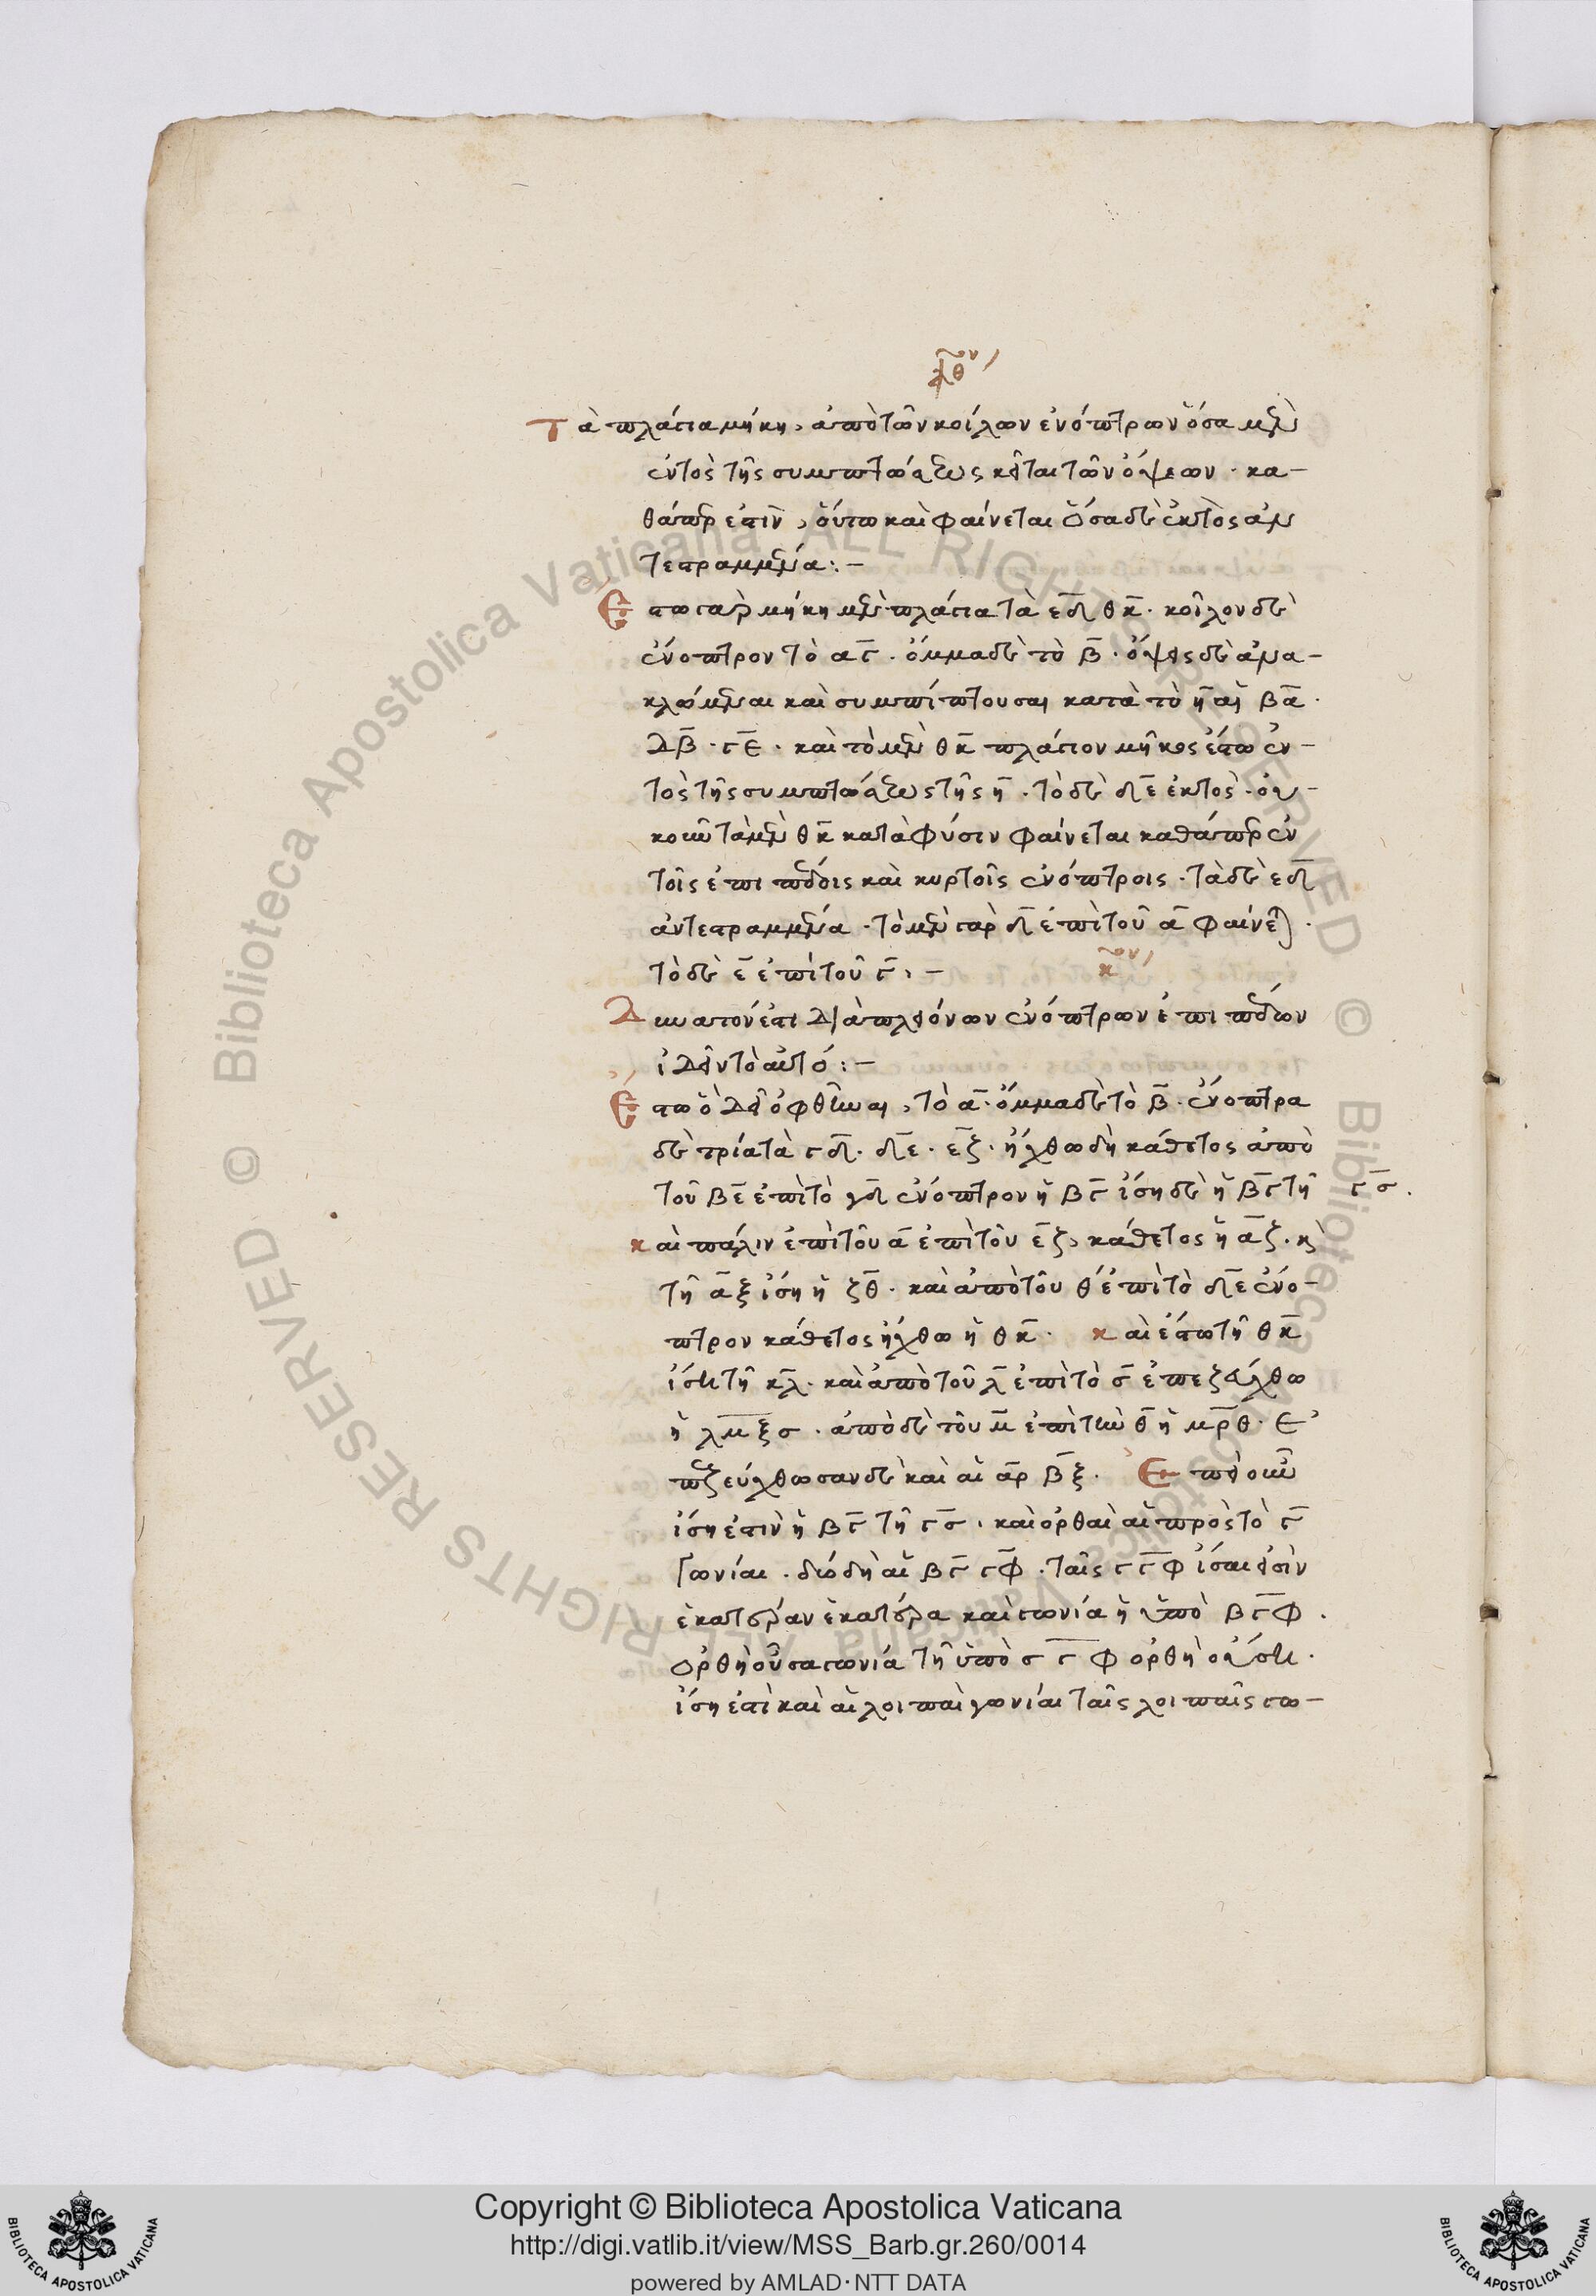 ιθον
Τὰ πλάγια μήκη, ἀπὸ τῶν κοίλων ἐνόπτρων ὅσα μὲν
ἐντὸς τῆς συμπτώσεως κεῖται τῶν ὄψεων · κα–
θάπερ ἐστὶν, οὕτω καὶ φαίνεται ὅσα δὲ ἐκτὸς ἀν
τεστραμμένα : –
Ἔστω γὰρ μήκη μὲν πλάγια τὰ εδ θκ · κοῖλον δὲ
ἔνοπτρον τὸ αγ · ὄμμα δὲ τὸ β · ὄψεις δὲ ἀνα–
κλώμεναι καὶ συμπίπτουσαι κατὰ τὸ η αἱ βα ·
δβ · γε · καὶ τὸ μὲν θκ πλάγιον μῆκος ἔστω ἐν–
τὸς τῆς συμπτώσεως τῆς η · τὸ δὲ δε ἐκτὸς · οὐ–
κοῦν τὰ μὲν θκ κατὰ φύσιν φαίνεται καθάπερ ἐν
τοῖς ἐπιπέδοις καὶ κυρτοῖς ἐνόπτροις · τὰ δὲ εδ
ἀντεστραμμένα · τὸ μὲν γὰρ δ ἐπὶ τοῦ α φαίνεται ·
τὸ δὲ ε ἐπὶ τοῦ γ · –
κον
Δυνατόν ἐστι διὰ πλειόνων ἐνόπτρων ἐπιπέδων
ἰδεῖν τὸ αὐτό : –
Ἔστω ὃ δεῖ ὀφθῆναι, τὸ α · ὄμμα δὲ τὸ β · ἔνοπτρα
δὲ τρία τὰ γδ · δε · εζ · ἤχθω δὴ κάθετος ἀπὸ
τοῦ βε ἐπὶ τὸ γδ ἔνοπτρον ἡ βγ ἴση δὲ ἡ βγ τῇ γσ ·
καὶ πάλιν ἐπὶ τοῦ α ἐπὶ τοῦ εζ, κάθετος ἡ αζ · καὶ
τῇ αξ ἴση ἡ ζθ · καὶ ἀπὸ τοῦ θ ἐπὶ τὸ δε ἔνο–
πτρον κάθετος ἤχθω ἡ θκ · καὶ ἔστω τῇ θκ
ἴση τῇ κλ · καὶ ἀπὸ τοῦ λ ἐπὶ τὸ σ ἐπεζεύχθω
ἡ λμξσ · ἀπὸ δὲ τοῦ μ ἐπὶ τὴν θ ἡ μρθ · ἐ
πεζεύχθωσαν δὲ καὶ αἱ αρ βξ · Ἐπεὶ οὖν
ἴση ἐστὶν ἡ βγ τῇ γσ · καὶ ὀρθαὶ αἱ πρὸς τὸ γ
γωνίαι · δύο δὴ αἱ βγ γφ · ταῖς γγφ ἴσαι εἰσὶν
ἑκατέραν ἑκατέρα καὶ γωνία ἡ ὑπὸ βγφ ·
ὀρθὴ οὖσα γωνία τῇ ὑπὸ σγφ ὀρθὴ οὔση ·
ἴση ἐστὶ καὶ αἱ λοιπαὶ γωνίαι ταῖς λοιπαῖς γω–
Copyright © Biblioteca Apostolica Vaticana
http://digi.vatlib.it/view/MSS_Barb.gr.260/0014
powered by AMLAD·NTT DATA
BIBLIOTECA APOSTOLICA VATICANA
BIBLIOTECA APOSTOLICA VATICANA
© Biblioteca Apostolica Vaticana ALL RIGHTS RESERVED © Biblioteca Apostolica Vaticana ALL RIGHTS RESERVED